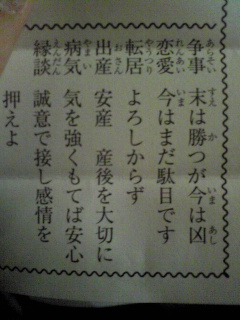 争事 末は勝つが今は凶
恋愛 今はまだ駄目です
転居 よろしからず
出産 安産 産後を大切に
病気 気を強くもてば安心
縁談 誠意で接し感情を
押えよ